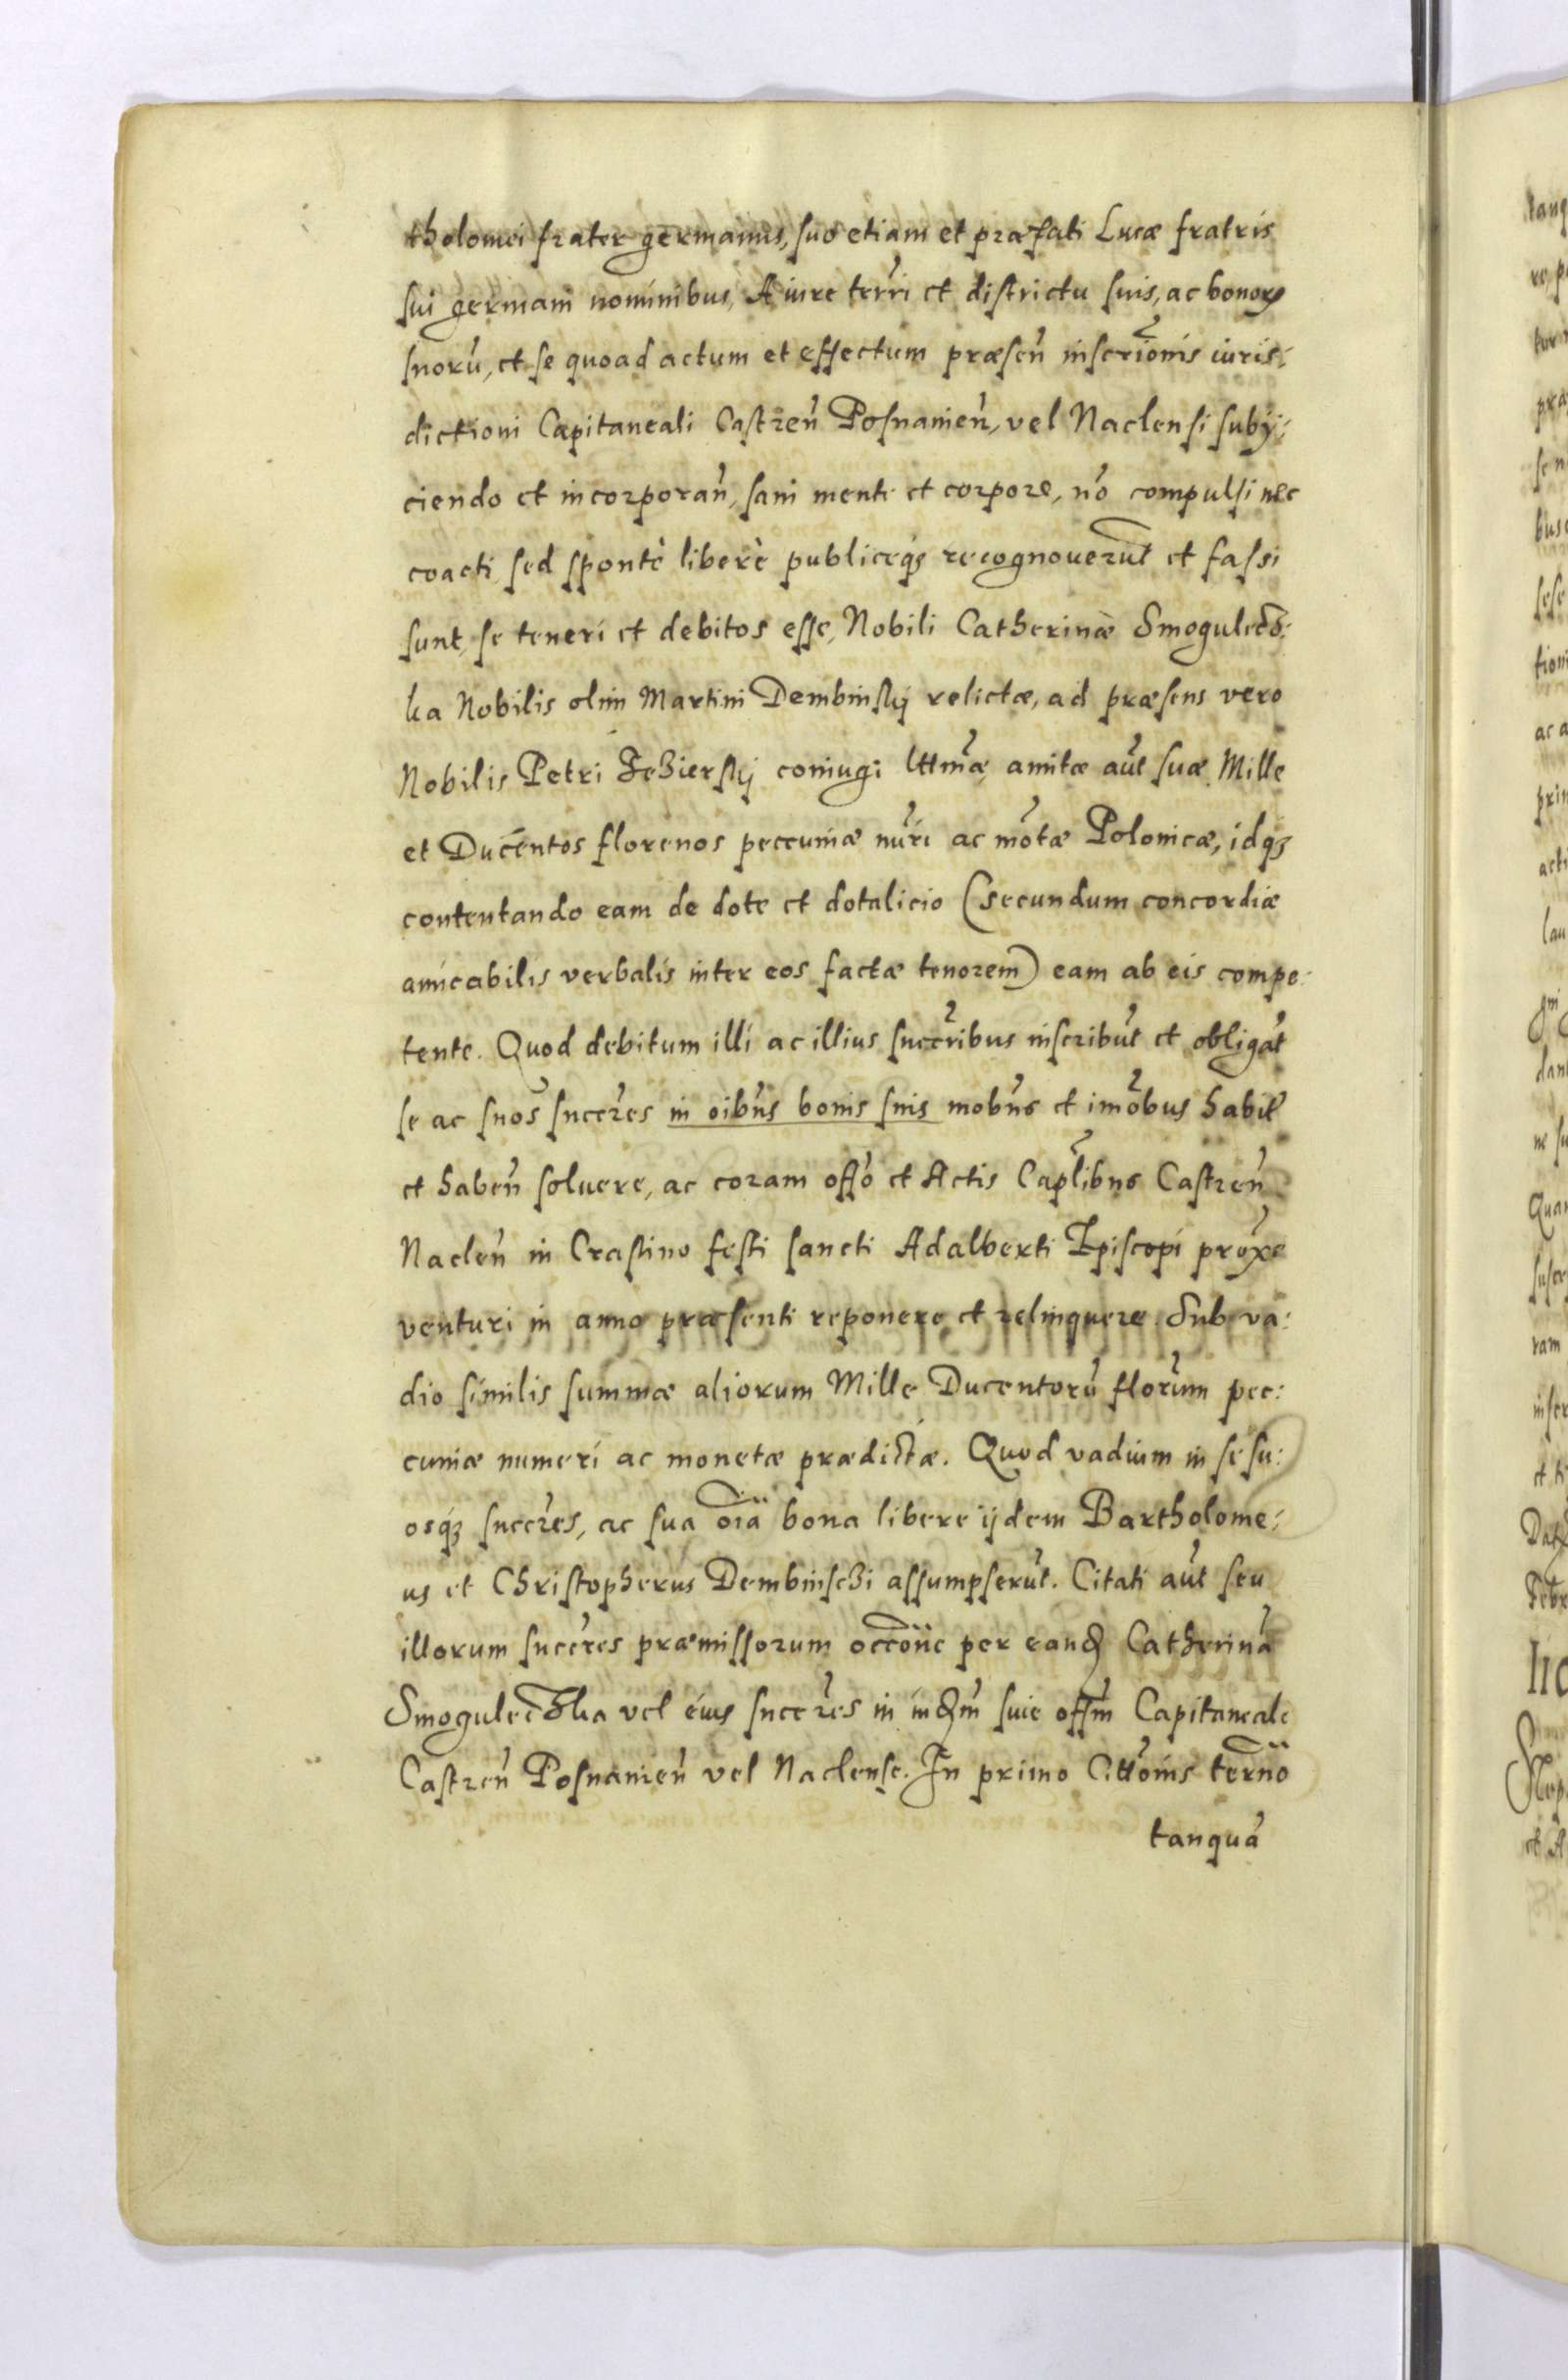 tholomei frater germanus, suo etiam et præfati Lucæ fratris
sui germani nominibus, A iure terri et districtu suis, ac bonorꝝ
suorũ, et se quoad actum et effectum præsen̄ inscrionis iuris:
dictioni Capitaneali Castren̄ Posnanien̄, vel Naclensi subij:
ciendo et incorporan̄, sani mente et corpore, nõ compulsi nec
coacti sed spontè liberè publiceqꝫ recognouerũt et fassi
sunt, se teneri et debitos esse, Nobili Catherinæ Smogulecz:
ka Nobilis olim Martini Dembinskij relictæ, ad præsens vero
Nobilis Petri Jezierskij coniugi lttmæ amitæ aũt suæ Mille
et Ducentos florenos peccuniæ nũri ac mõtæ Polonicæ, idqꝫ
contentando eam de dote et dotalicio (secundum concordiæ
amicabilis verbalis inter eos factæ tenorem) eam ab eis compe:
tente. Quod debitum illi ac illius succribus inscribũt et obligãt
se ac suos succres in oibus bonis suis mobus et imõbus habit
et haben̄ soluere, ac coram offo et Actis Caplibus Castren̄
Naclen̄ in Crastino festi sancti Adalberti Episcopi proxe
venturi in anno præsenti reponere et relinquere. Sub va:
dio similis summæ aliorum Mille Ducentorũ florum pec:
cuniæ numeri ac monetæ prædictæ. Quod vadium in se su:
osqꝫ succres, ac sua oia bona libere ijdem Bartholome:
us et Christopherus Dembinschi assumpserũt. Citati aũt seu
illorum succres præmissorum occõne per eandꝫ Catherinã
Smoguleczka vel eius succres in iudm siue offm Capitaneale
Castren̄ Posnanien̄ vel Naclense. In primo Cittonis termo
tanquã